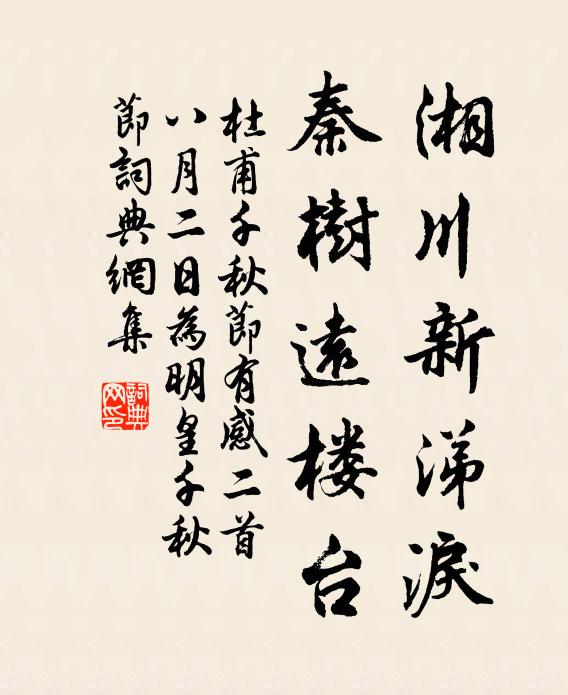 湘川新涕淚
秦樹遠楼台
杜甫千秋節有感二首
八月二日為明皇千秋
節詞典網集
詞典网印